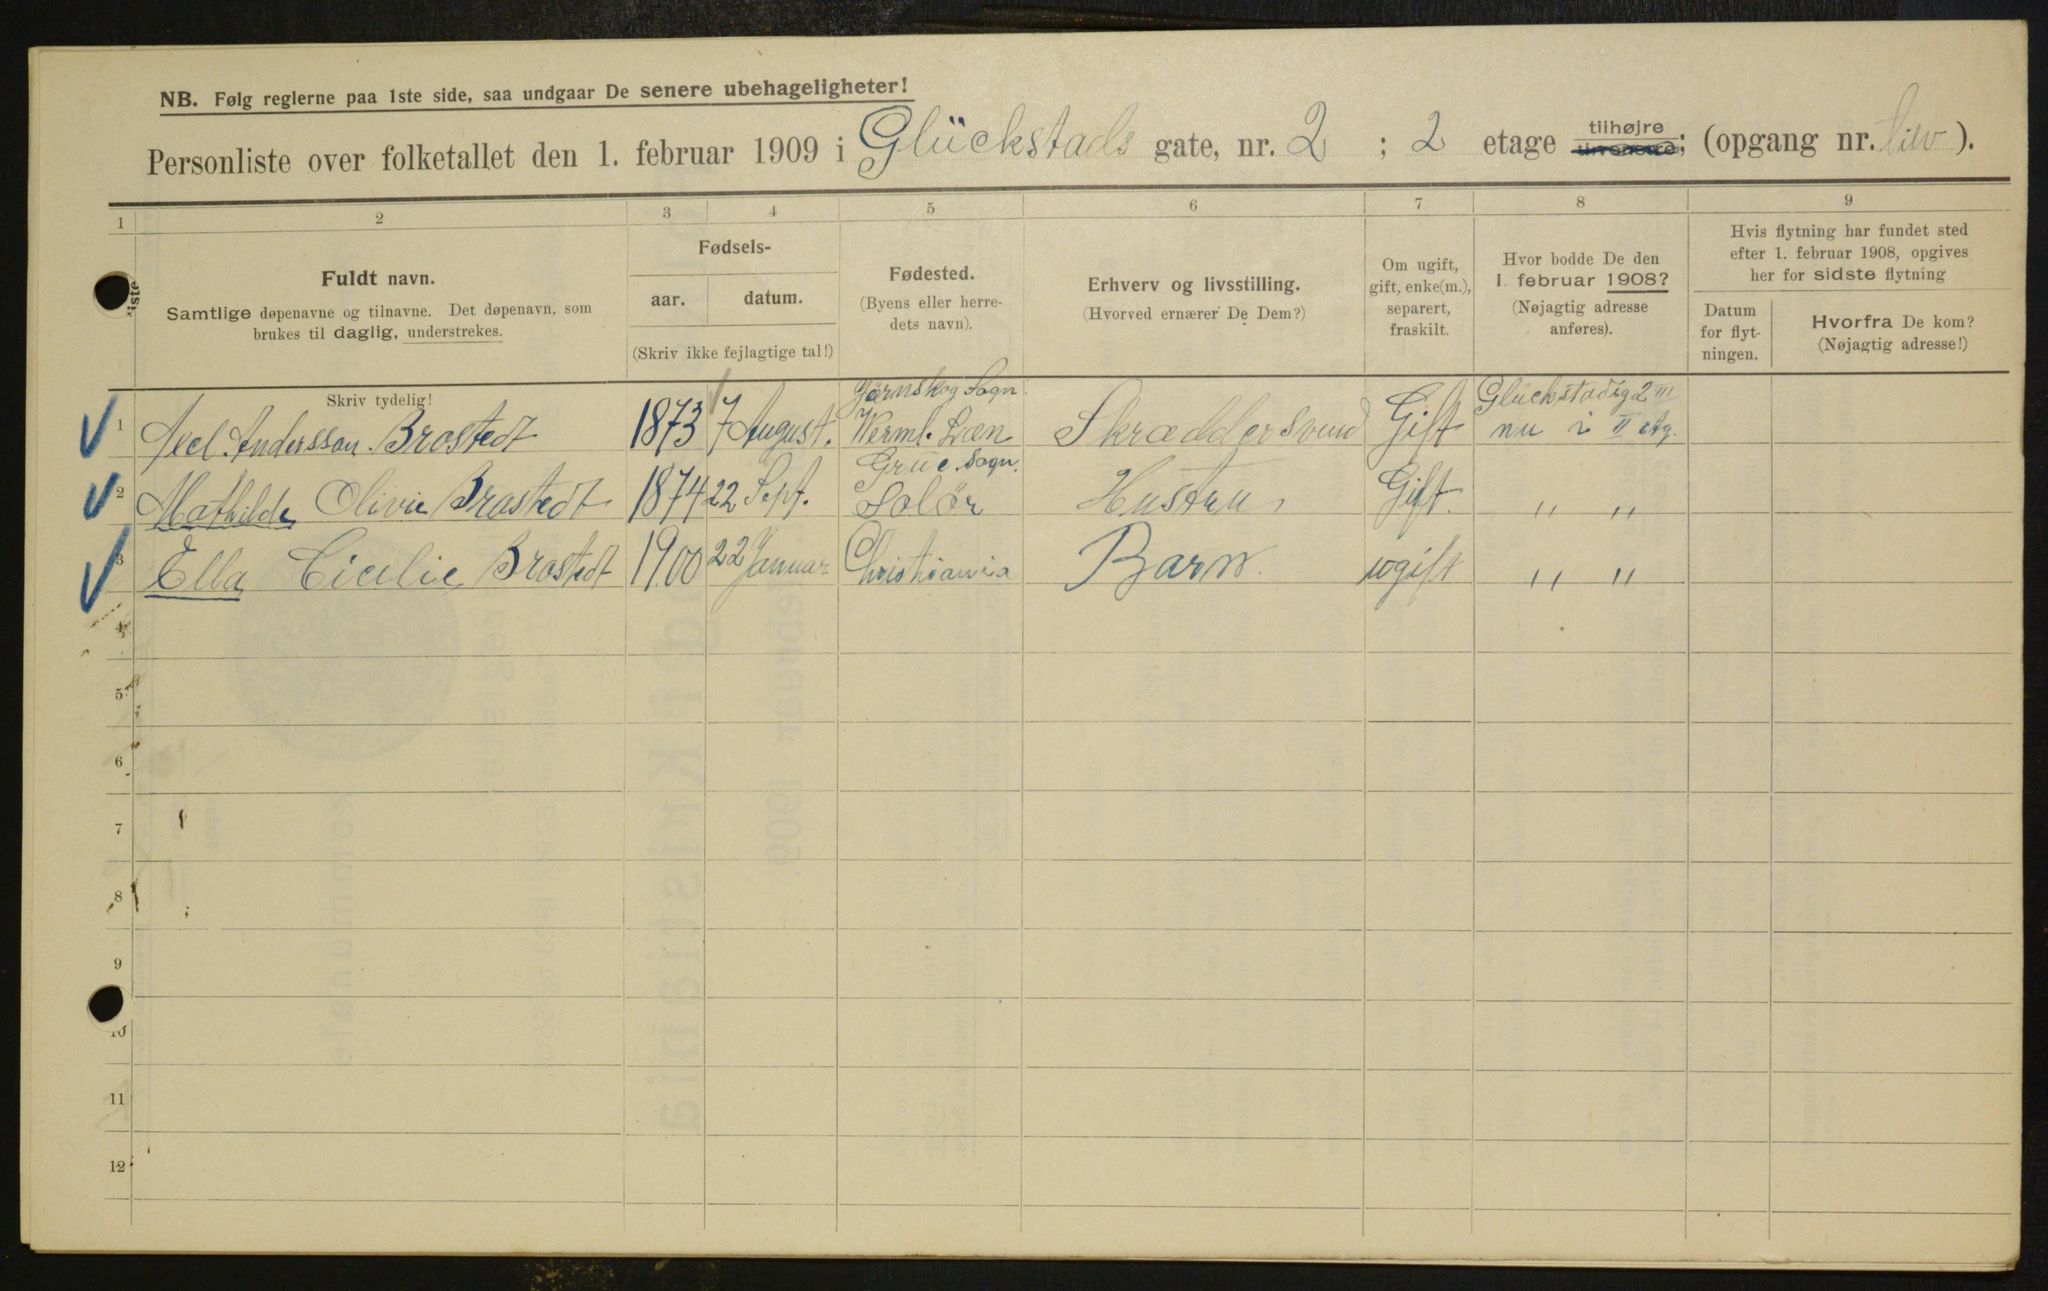 NB. Følg reglerne paa 1ste side, saa undgaar De senere ubehageligheter!
Personliste over folketallet den 1. februar 1909 i Glückstads gate, nr. 2 ; 2 etage tilhøjre; (opgang nr. ).
1 2 3 4 5 6 7 8 9
Fuldt navn.
Samtlige døpenavne og tilnavne. Det døpenavn, som
brukes til daglig, understrekes.
Skriv tydelig!
Fødsels-
aar. datum.
(Skriv ikke fejlagtige tal!)
Fødested.
(Byens eller herre-
dets navn).
Erhverv og livsstilling.
(Hvorved ernærer De Dem?)
Om ugift,
gift, enke(m.),
separert,
fraskilt.
Hvor bodde De den
1. februar 1908?
(Nøjagtig adresse
anføres).
Hvis flytning har fundet sted
efter 1. februar 1908, opgives
her for sidste flytning
Datum
for flyt-
ningen.
Hvorfra De kom?
(Nøjagtig adresse!)
Järnskog Sogn. Glückstadsg 2 III
1 Axel Andersson Brostedt 1873 7 August. Werml. Læn Skræddersvend Gift nu i II etg.
Grue Sogn.
2 Mathilde Olivie Brostedt 1874 22 Sept. Solör Hustru Gift. " "
3 Ella Cicilie Brostedt 1900 22 Januar Christiania Barn ugift " "
4
5
6
7
8
9
10
11
12